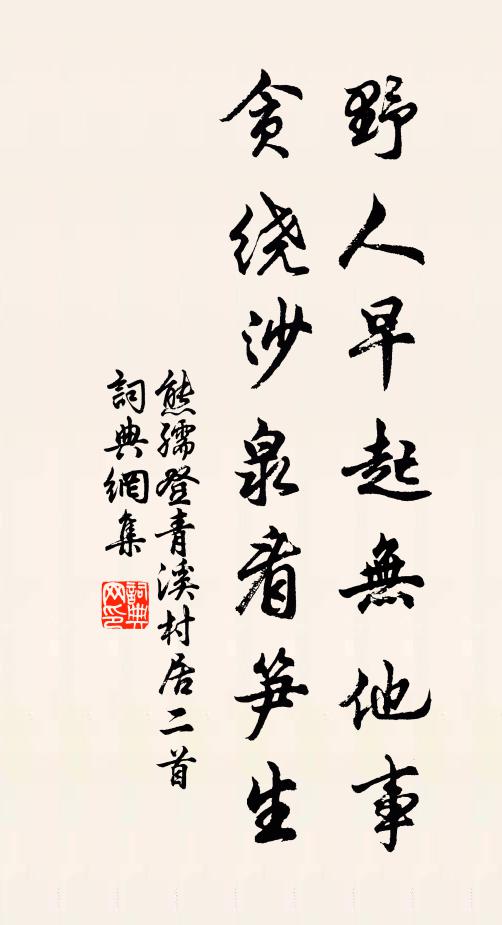 野人早起無他事
貪绕沙泉看笋生
熊孺登青溪村居二首
詞典網集
詞典網印